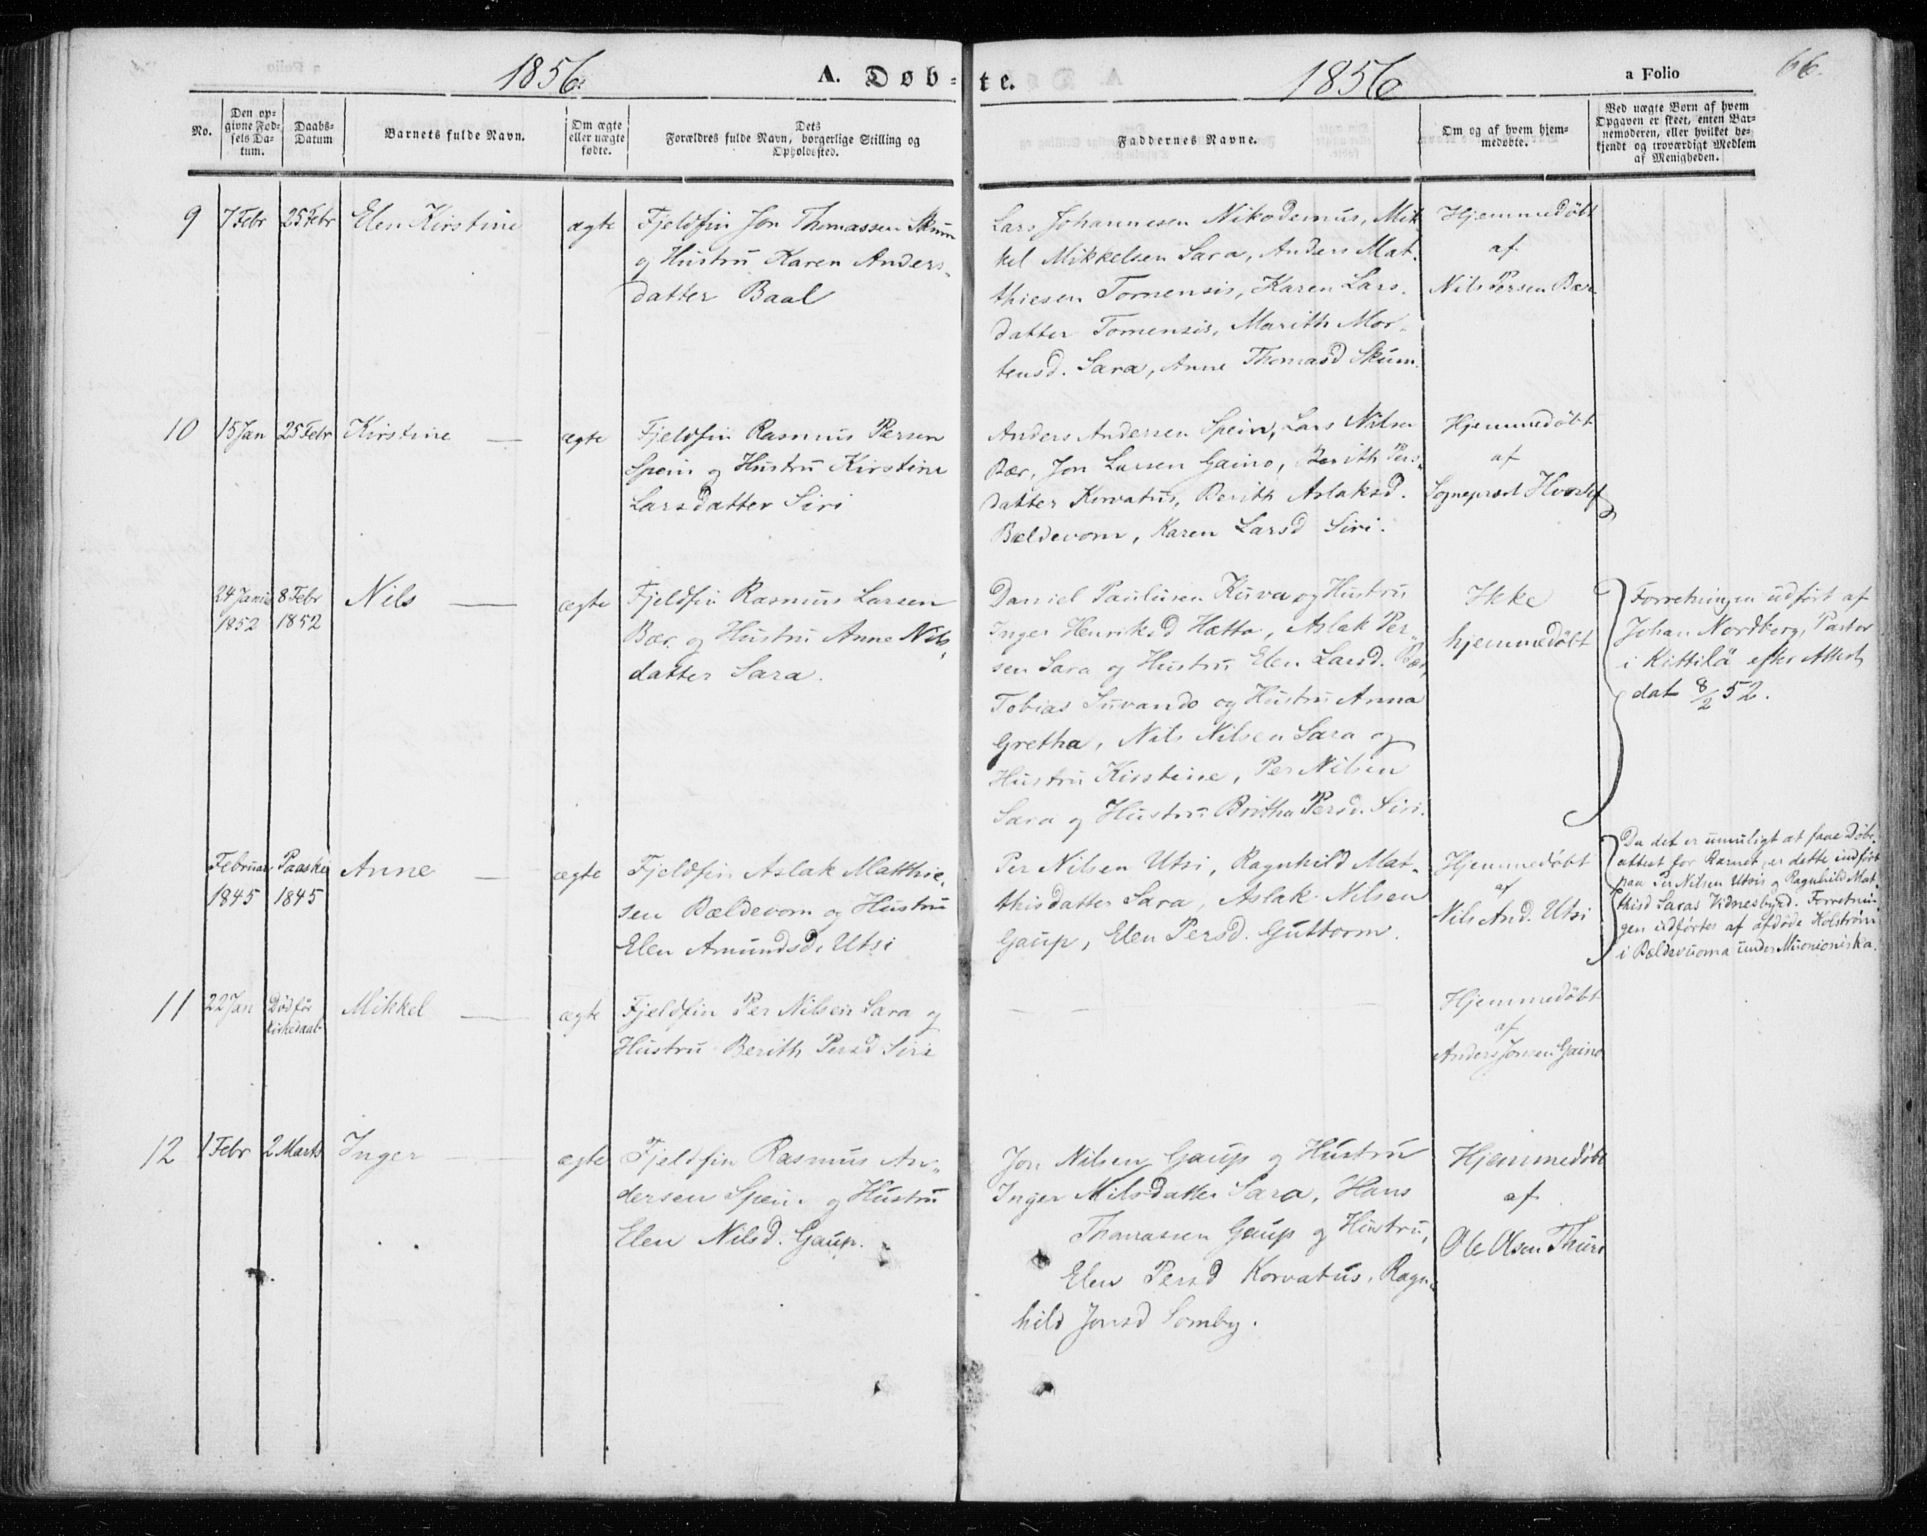 1856. A. Døb= te. 1856 a Folio 66.
No.
Den op-
givne Fød-
sels Da-
tum.
Daabs-
Datum
Barnets fulde Navn.
Om ægte
eller uægte
fødte.
Dets
Forældres fulde Navn, borgerlige Stilling og
Opholdssted.
Faddernes Navne.
Om og af hvem hjem-
medøbte.
Ved uægte Børn af hvem
Opgaven er skeet, enten Bar-
nemoderen, eller hvilket be-
kjendt og troværdigt Medlem
af Menigheden.
9 7 Febr 25 Febr Elen Kirstine ægte
Fjeldfin Jon Thomassen Skum
og Hustru Karen Anders-
datter Baal
Lars Johannesen Nikodemus, Mik
kel Mikkelsen Sara, Anders Mat-
thiesen Tornensis, Karen Lars-
datter Tornensis, Marith Mor-
tensd. Sara, Anne Thomasd Skum.
Hjemmedøbt
af
Nils Persen Bær
10 15 Jan 25 Febr Kirstine — ægte
Fjeldfin Rasmus Persen
Spein og Hustru Kirstine
Larsdatter Siri
Anders Andersen Spein, Lars Nilsen
Bær, Jon Larsen Gaino, Berith Pers-
datter Korvatus, Berith Aslaksd.
Bældevom, Karen Larsd Siri.
Hjemmedøbt
af
Sogneprest Hvoslef
24 Janu 8 Febr
1852 1852
Nils — ægte
Fjeldfin Rasmus Larsen
Bær og Hustru Anne Nils-
datter Sara.
Daniel Paulusen Kuva og Hustru
Inger Henriksd Hætta, Aslak Per-
sen Sara og Hustru Elen Larsd. Bær,
Tobias Suvando og Hustru Anna
Gretha, Nils Nilsen Sara og
Hustru Kirstine, Per Nilsen
Sara og Hustru Britha Persd. Siri.
Ikke
hjemmedøbt
Forretningen udført af
Johan Nordberg, Pastor
i Kittilä efter Attest
dat 8/2 52.
Februar Paaske
1845 1845
Anne — ægte
Fjeldfin Aslak Matthie-
sen Bældevom og Hustru
Elen Amundsd. Utsi
Per Nilsen Utsi, Ragnhild Mat-
thisdatter Sara, Aslak Nilsen
Gaup, Elen Persd. Guttorm.
Hjemmedøbt
af
Nils And. Utsi
Da det er umuligt at faae Døbe-
attest for Barnet, er dette indført
paa Per Nilsen Utsis og Ragnhild Mat-
thisd Saras Vidnesbyrd. Forretnin-
gen udførtes af afdøde Kolström
i Bældevuoma under Muonioniska.
11 22 Jan Død før
kirkedaab-
Mikkel — ægte
Fjeldfin Per Nilsen Sara og
Hustru Berith Persd Siri
— —
Hjemmedøbt
af
Anders Jonsen Gaino
12 1 Febr 2 Marts Inger — ægte
Fjeldfin Rasmus An-
dersen Spein og Hustru
Elen Nilsd. Gaup.
Jon Nilsen Gaup og Hustru
Inger Nilsdatter Sara, Hans
Thomassen Gaup og Hustru,
Elen Persd Korvatus, Ragn-
hild Jonsd Somby.
Hjemmedøbt
af
Ole Olsen Thuri